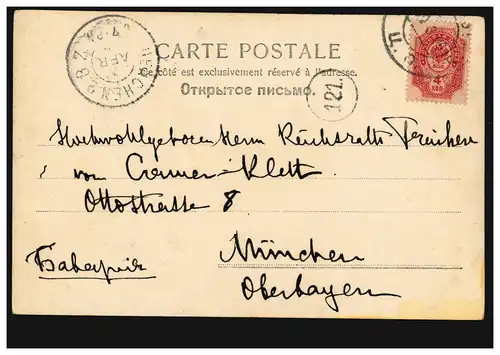 CARTE POSTALE
Ce côté est exclusivement réservé à l'adresse.
Открытое письмо.
121.
MÜNCHEN
APR
7-8
Hochwohlgeboren Herrn Reichsrath Freiherr
von Cramer-Klett
Ottostrasse 8
München
Бавария
Oberbayern